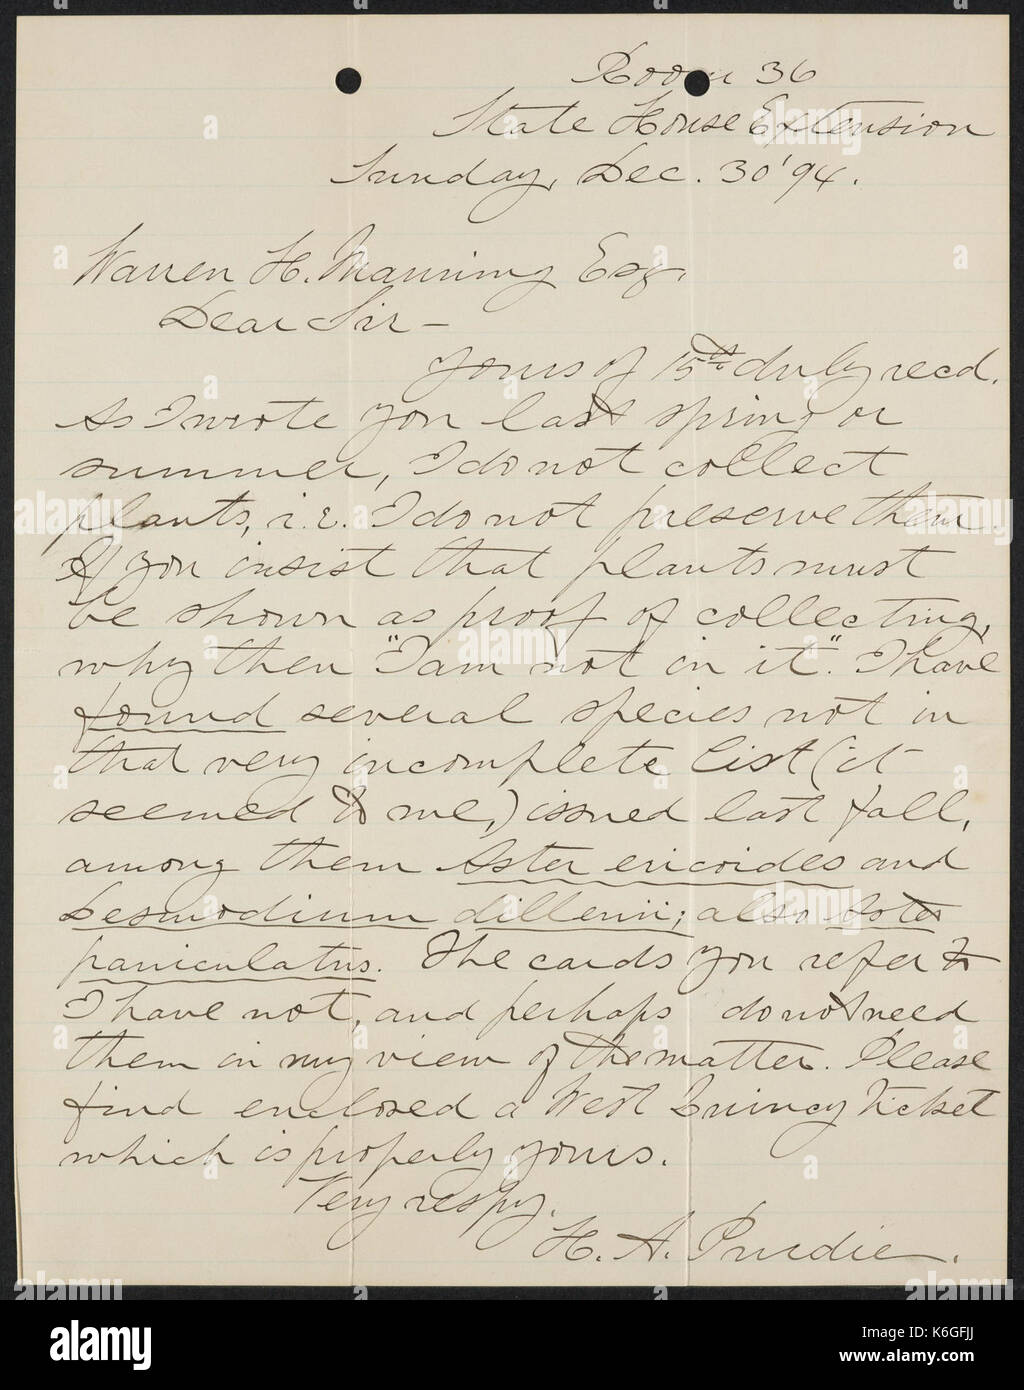 Room 36
State House Extension
Sunday, Dec. 30 '94.
Warren H. Manning Esq.
Dear Sir—
Yours of 15th duly recd.
As I wrote you last spring or
summer, I do not collect
plants, i.e. I do not preserve them.
If you insist that plants must
be shown as proof of collecting,
why then "I am not in it". I have
found several species not in
that very incomplete list (it
seemed to me,) issued last fall,
among them Aster ericoides and
Desmodium dillenii; also Aster
paniculatus. The cards you refer to
I have not, and perhaps do not need
them in my view of the matter. Please
find enclosed a West Quincy ticket
which is properly yours.
Very respy.
H. A. Purdie.
alamy
alamy stock photo
K6GFJJ
www.alamy.com